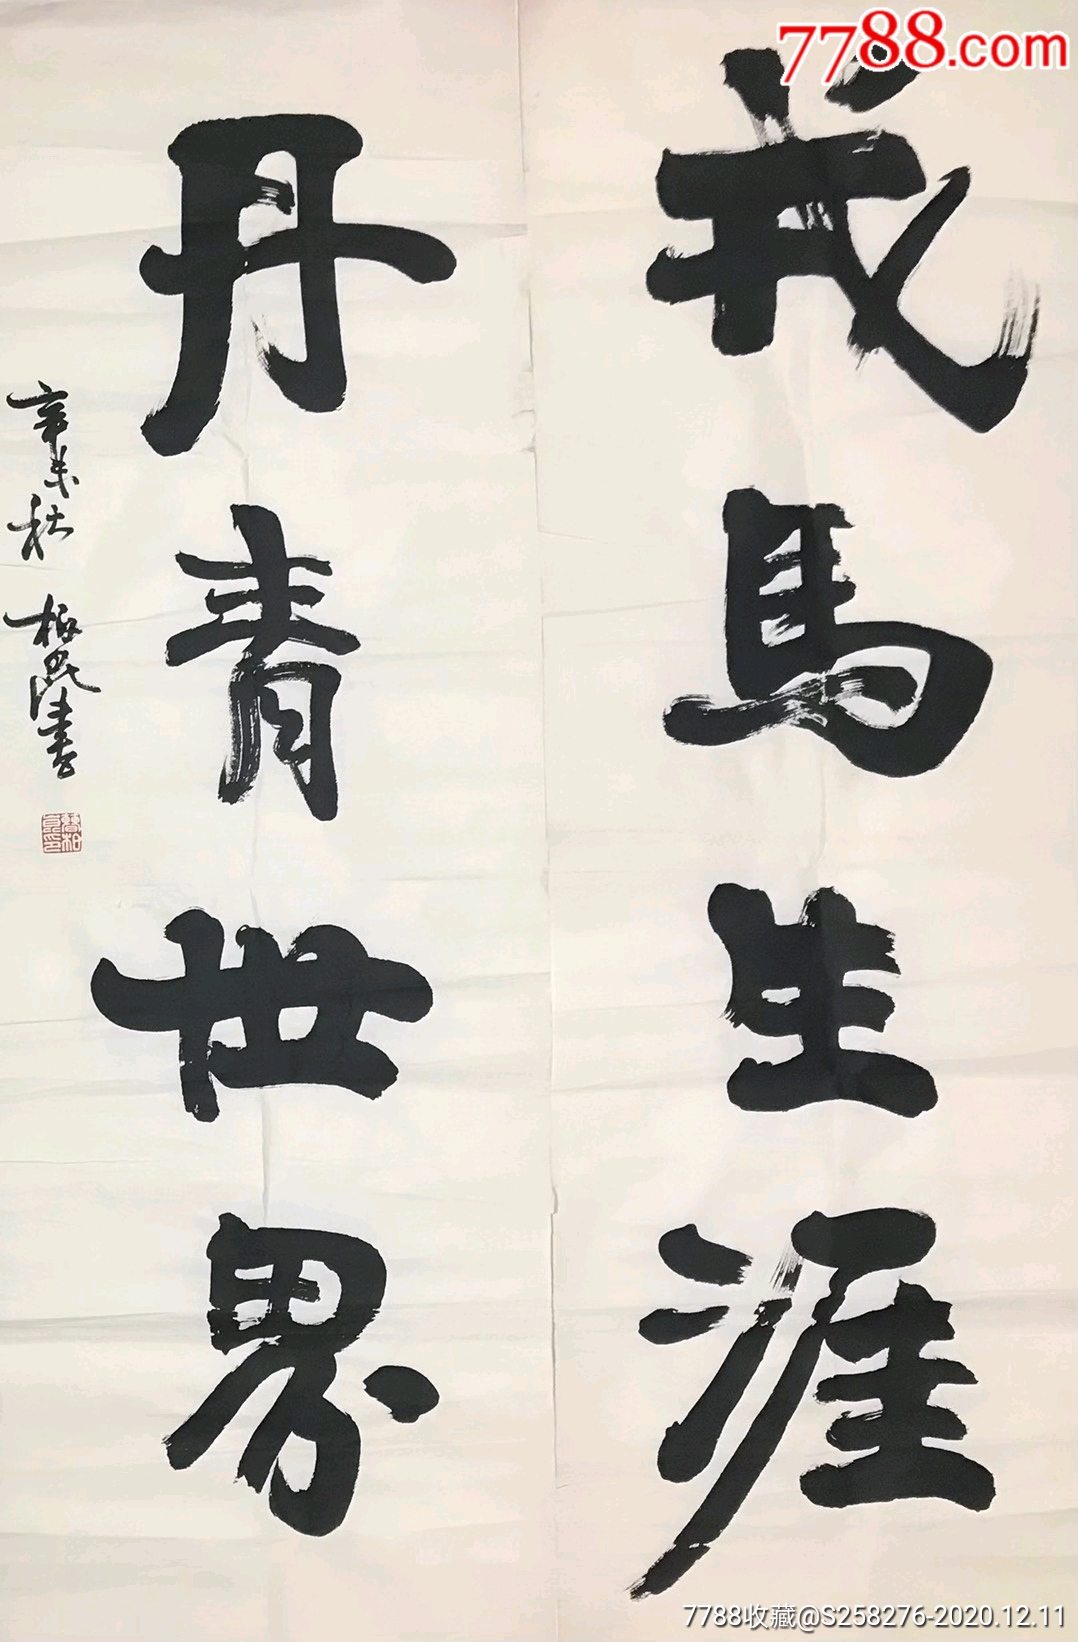 7788.com
戎馬生涯
丹青世界
辛未秋
書
7788收藏@S258276-2020.12.11